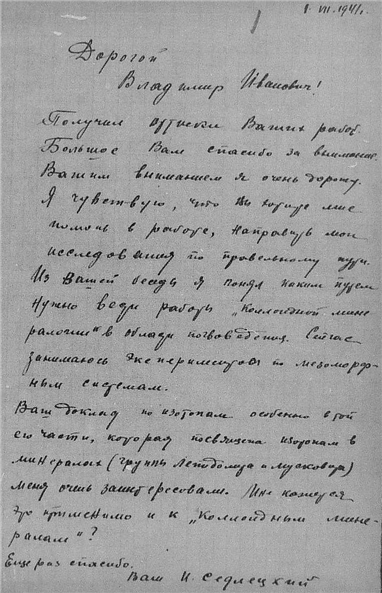 1. VII. 1941 г.
Дорогой
Владимир Иванович!
Получил оттиски Ваших работ.
Большое Вам спасибо за внимание.
Вашим вниманием я очень дорожу.
Я чувствую, что Вы хотите мне
помочь в работе, направить мои
исследования по правельному пути.
Из Вашей беседы я понял каким путем
нужно вести работы „Коллоидной мине-
ралогии" в области почвоведения. Сейчас
занимаюсь экспериментом по мезоморф-
ным системам.
Ваш доклад по изотопам особенно в той
его части, которая посвящена изотопам в
минералах (группы Лепидолита и мусковита)
меня очень заинтересовали. Мне кажется
это применимо и к „Коллоидным мине-
ралам"?
Еще раз спасибо.
Ваш И. Седлецкий